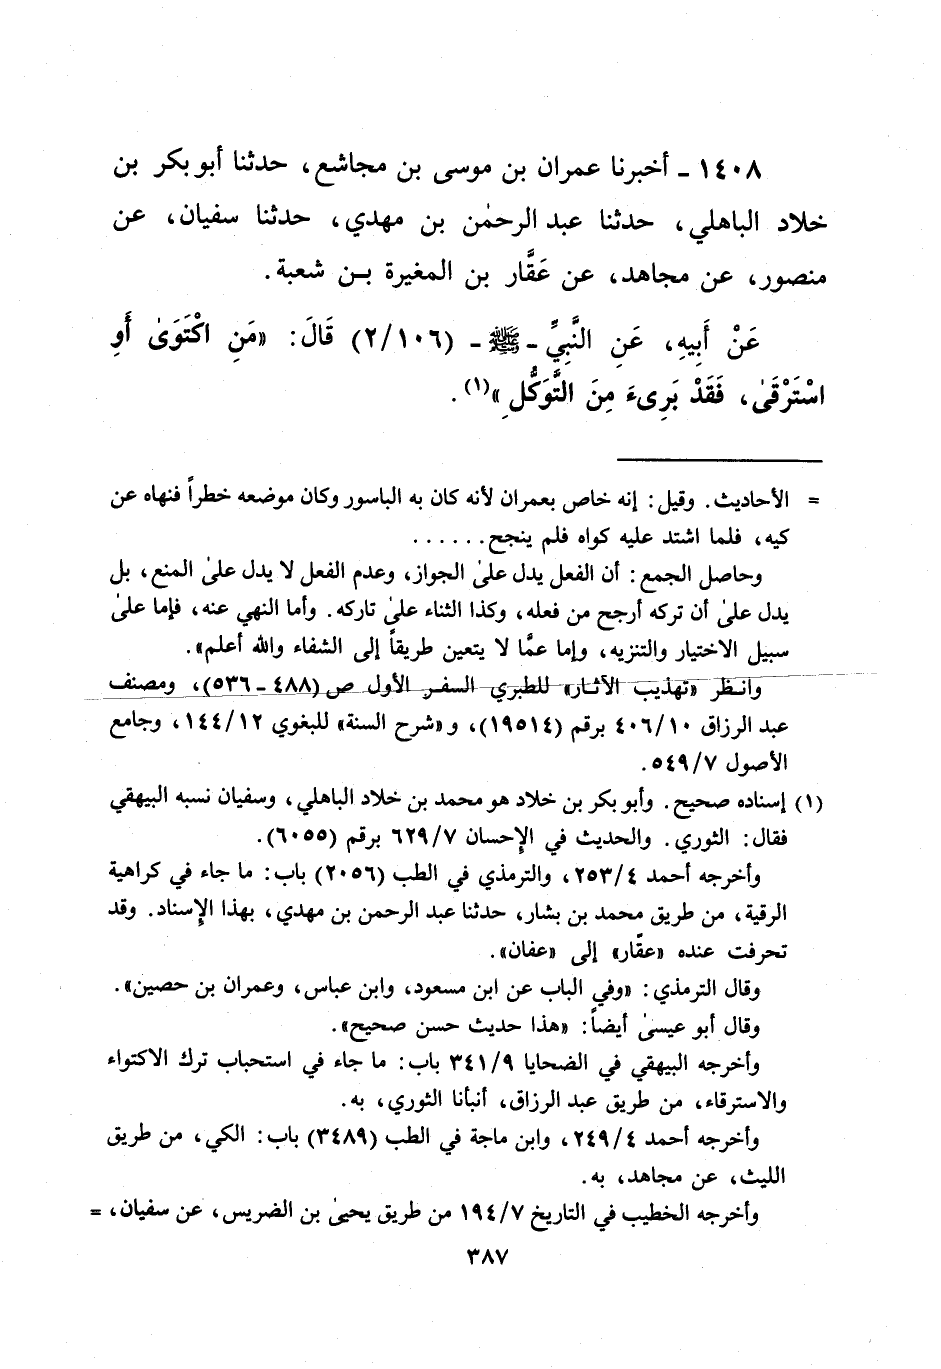 ١٤٠٨ - أخبرنا عمران بن موسى بن مجاشع، حدثنا أبو بكر بن
خلاد الباهلي، حدثنا عبد الرحمٰن بن مهدي، حدثنا سفيان، عن
منصور، عن مجاهد، عن عَقَّار بن المغيرة بن شعبة.
عَنْ أَبِيهِ، عَنِ النَّبِيِّ - ﷺ - (٢/١٠٦) قَالَ: «مَنِ اكْتَوَىٰ أَوِ
اسْتَرْقَىٰ، فَقَدْ بَرِىءَ مِنَ التَّوَكُّلِ»(١).
= الأحاديث. وقيل: إنه خاص بعمران لأنه كان به الباسور وكان موضعه خطراً فنهاه عن
كيه، فلما اشتد عليه كواه فلم ينجح......
وحاصل الجمع: أن الفعل يدل علىٰ الجواز، وعدم الفعل لا يدل علىٰ المنع، بل
يدل علىٰ أن تركه أرجح من فعله، وكذا الثناء علىٰ تاركه. وأما النهي عنه، فإما علىٰ
سبيل الاختيار والتنزيه، وإما عمَّا لا يتعين طريقاً إلى الشفاء والله أعلم».
وانظر «تهذيب الآثار» للطبري السفر الأول ص (٤٨٨ - ٥٣٦)، ومصنف
عبد الرزاق ٤٠٦/١٠ برقم (١٩٥١٤)، و«شرح السنة» للبغوي ١٤٤/١٢، وجامع
الأصول ٥٤٩/٧.
(١) إسناده صحيح. وأبو بكر بن خلاد هو محمد بن خلاد الباهلي، وسفيان نسبه البيهقي
فقال: الثوري. والحديث في الإحسان ٦٢٩/٧ برقم (٦٠٥٥).
وأخرجه أحمد ٢٥٣/٤، والترمذي في الطب (٢٠٥٦) باب: ما جاء في كراهية
الرقية، من طريق محمد بن بشار، حدثنا عبد الرحمن بن مهدي، بهذا الإسناد. وقد
تحرفت عنده «عقّار» إلى «عفان».
وقال الترمذي: «وفي الباب عن ابن مسعود، وابن عباس، وعمران بن حصين».
وقال أبو عيسىٰ أيضاً: «هذا حديث حسن صحيح».
وأخرجه البيهقي في الضحايا ٣٤١/٩ باب: ما جاء في استحباب ترك الاكتواء
والاسترقاء، من طريق عبد الرزاق، أنبأنا الثوري، به.
وأخرجه أحمد ٢٤٩/٤، وابن ماجة في الطب (٣٤٨٩) باب: الكي، من طريق
الليث، عن مجاهد، به.
وأخرجه الخطيب في التاريخ ١٩٤/٧ من طريق يحيىٰ بن الضريس، عن سفيان، =
٣٨٧